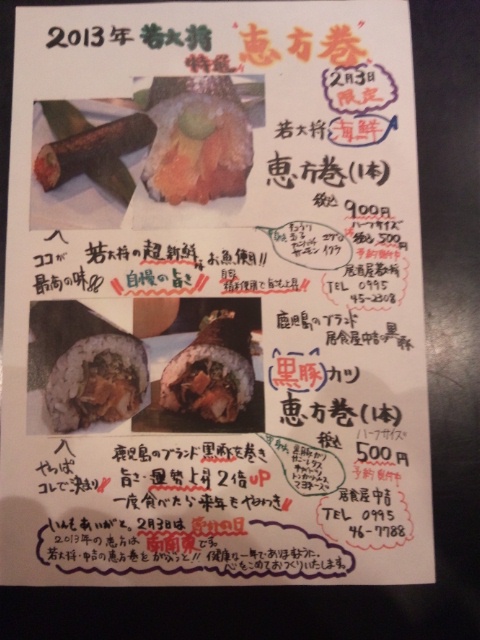 2013年 若大将
特選 "恵方巻"
2月3日
限定
若大将 海鮮
恵方巻(1本)
税込 900円
ハーフサイズ
税込 500円
予約受付中
居酒屋若大将
TEL 0995
45-2308
きゅうり
サーモン イクラ
ココが
最高の味
若大将の超新鮮なお魚使用!!
自慢の旨さ
鹿児島のブランド 黒豚
居食屋中吉の
黒豚カツ
恵方巻(1本)
ハーフサイズ
税込 500円
予約受付中
居食屋 中吉
TEL 0995
46-7788
黒豚カツ
サニーレタス
マヨネーズ
やっぱ
コレで決まり!!
鹿児島のブランド黒豚を巻き
旨さ・運勢上昇2倍UP
一度食べたら来年もやみつき!!
いつもありがとう。2月3日は節分の日
2013年の恵方は南南東です。
若大将・中吉の恵方巻をがぶっと!! 健康な一年であはますように、
心をこめておつくりいたします。